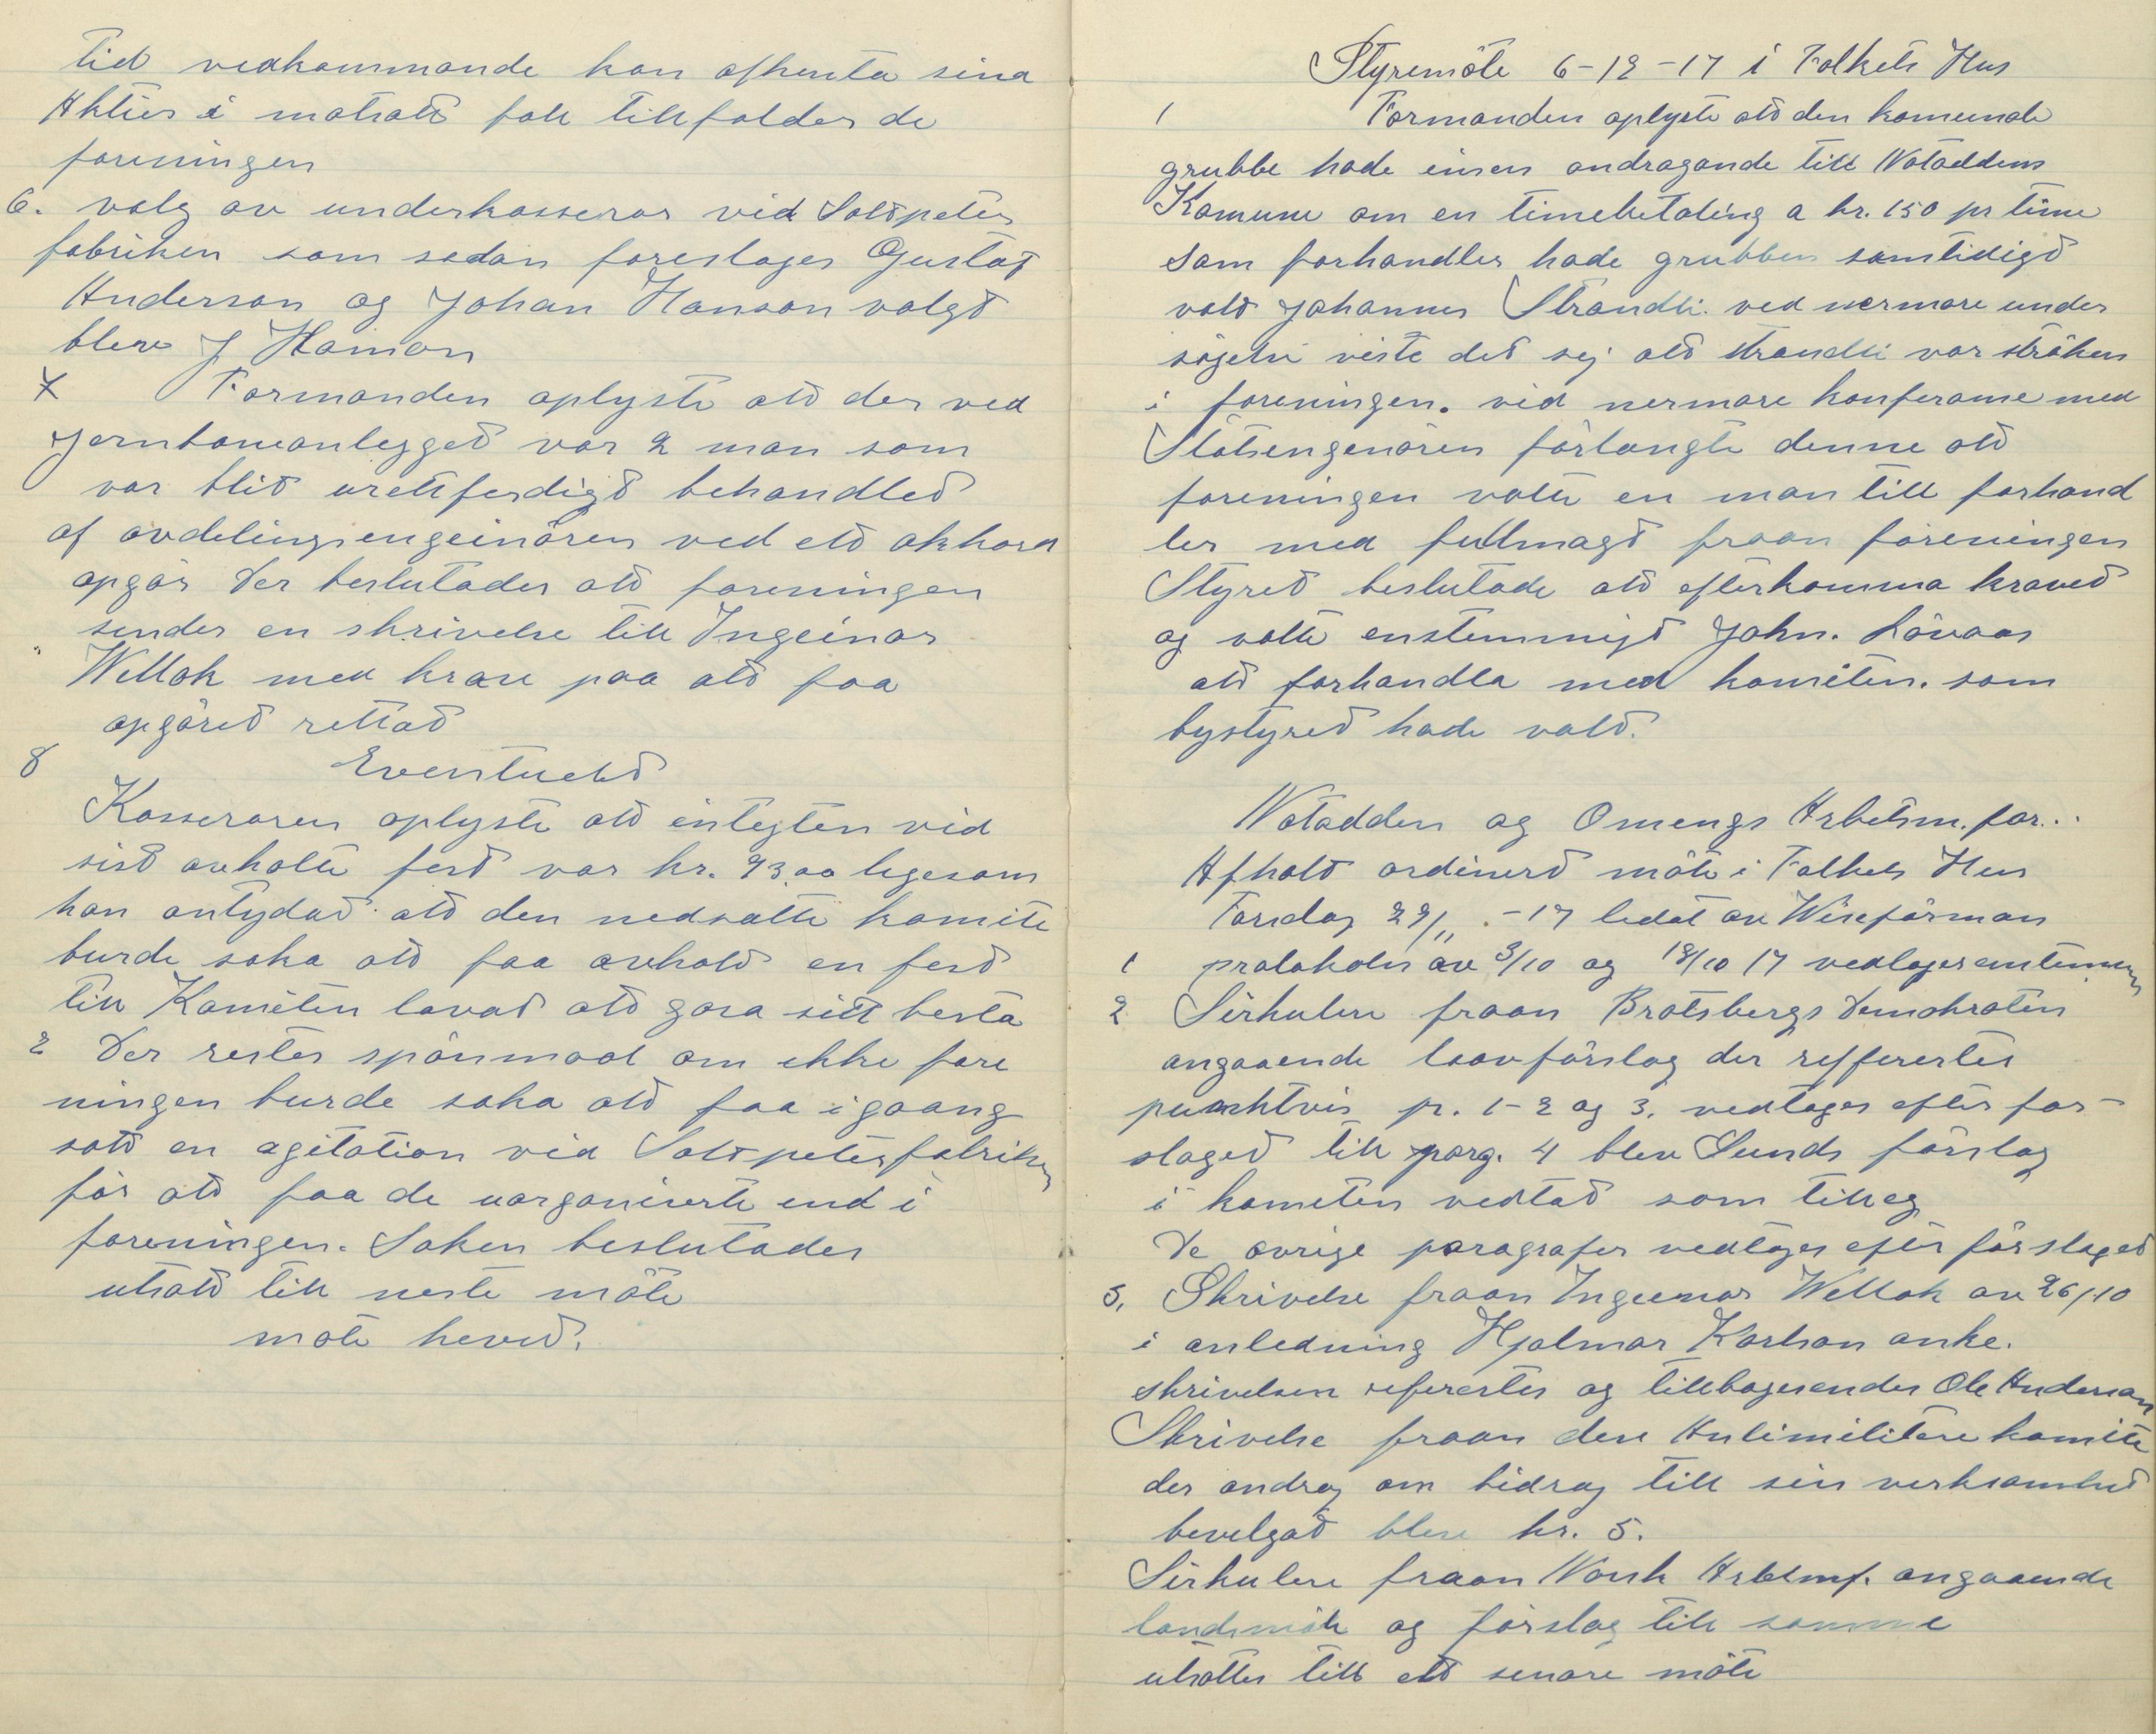 tid vedkommande kan afhenta sina
Aktier i motsatt fall tillfalder de
foreningen
6. valg av underkasserar vid Saltpeter
fabriken som sadan foreslages Gustaf
Anderson og Johan Hanson valgt
blev J Hanson
7 Formanden oplyste att der ved
Jernbaneanlegget var 2 man som
var blit urettferdigt behandlet
af avdelingsengeinören ved ett akkord
opgör Der beslutades att foreningen
sender en skrivelse till Ingeinör
Wellok med krav paa att faa
opgöret rettat
8 Eventuelt
Kasseraren oplyste att integten vid
sist avholte fest var kr. 93.00 ligesom
han antydat att den nedsatte komite
burde söka att faa avholt en fest
till Komiten lovat att göra sitt besta
2 Der restes spörsmaal om ikke fore
ningen burde söka att faa igaang
satt en agitation vid Saltpeterfabriken
för att faa de uorganiserte ind i
foreningen. Saken beslutades
utsatt till neste möte
möte hevet.
Styremöte 6-12-17 i Folkets Hus
1 Formanden oplyste att den komunale
grubbe hade insen andragande till Notoddens
Komune om en timebetaling a kr. 150 pr time
Som forhandler hade grubben samtidigt
valt Johannes Strandli. ved nermare under
sögelse viste det sej att Strandli var ströken
i foreningen. vid nermare konferanse med
Statsengenören förlangte denne att
foreningen valte en man till forhand
ler med fullmagt fraan föreningen
Styret beslutade att efterkomma kravet
og valte enstemmigt John. Lövaas
att forhandla med komiten. som
bystyret hade valt.
Notodden og Omengs Arbetsm. for..
Afholt ordinert möte i Folkets Hus
Torsdag 29/11.-17 ledet av Viseförman
1 protokoler av 3/10 og 18/10 17 vedtoges
2 Sirkulere fraan Bratsbergs Demokraten
angaaende laavförslag der refferertes
punktvis pr. 1-2 og 3. vedtoges efter för-
slaget till parg. 4 blev Lunds förslag
i komiten vedtat som tilleg
De övrige paragrafer vedtoges efter förslaget
3. Skrivelse fraan Ingeinör Wellok av 26/10
i anledning Hjalmar Karlson anke.
skrivelsen refererter og tillbagesendes Ole Anderson
Skrivelse fraan den Antimilitere komite
der androg om bidrag till sin verksamhet
bevilgat blev kr. 5.
Sirkulere fraan Norsk Arbtsmf. angaaende
landsmöte og förslag till samme
utsattes till ett senare möte